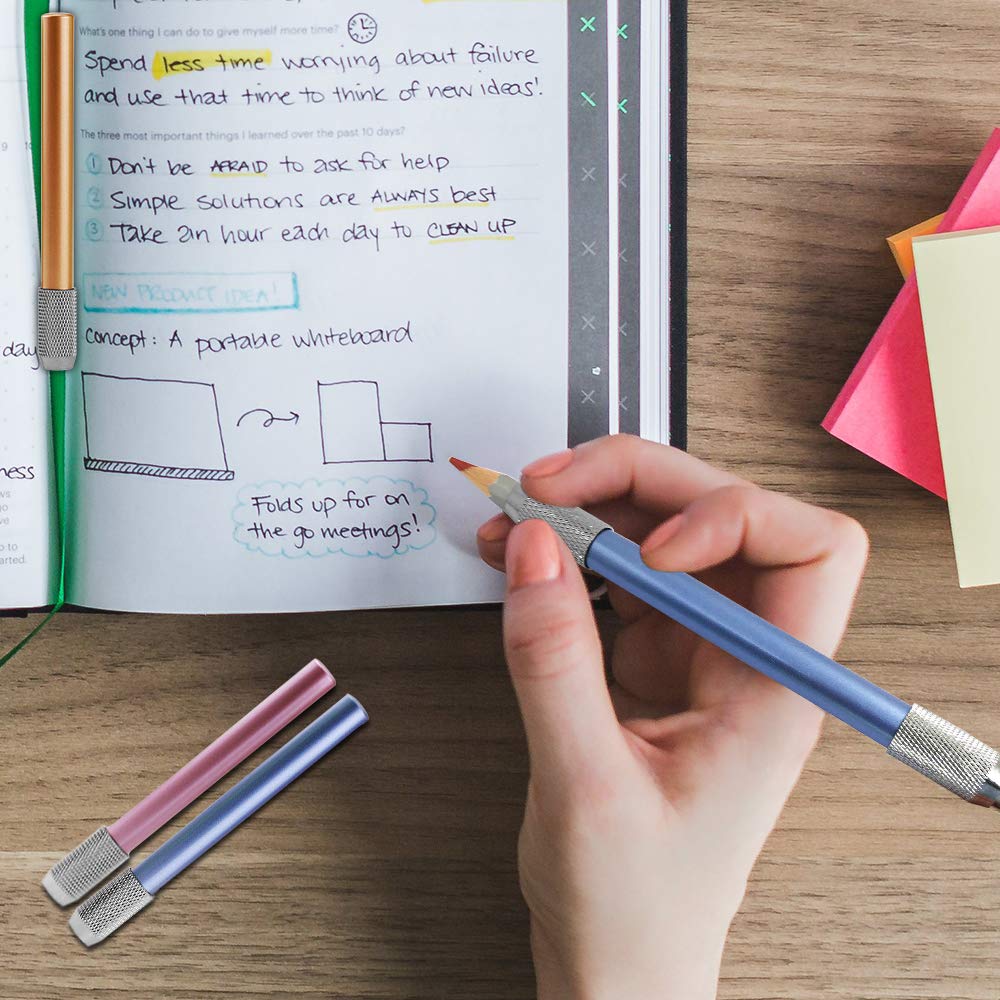 What's one thing I can do to give myself more time?
Spend less time worrying about failure
and use that time to think of new ideas!
The three most important things I learned over the past 10 days?
1 Don't be AFRAID to ask for help
2 Simple solutions are ALWAYS best
3 Take an hour each day to CLEAN UP
NEW PRODUCT IDEA!
Concept: A portable whiteboard
Folds up for on
the go meetings!
9
day
ness